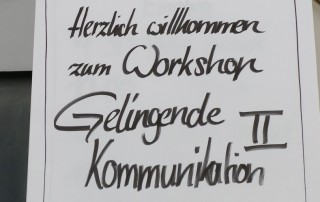 Herzlich willkommen
zum Workshop
Gelingende II
Kommunikation